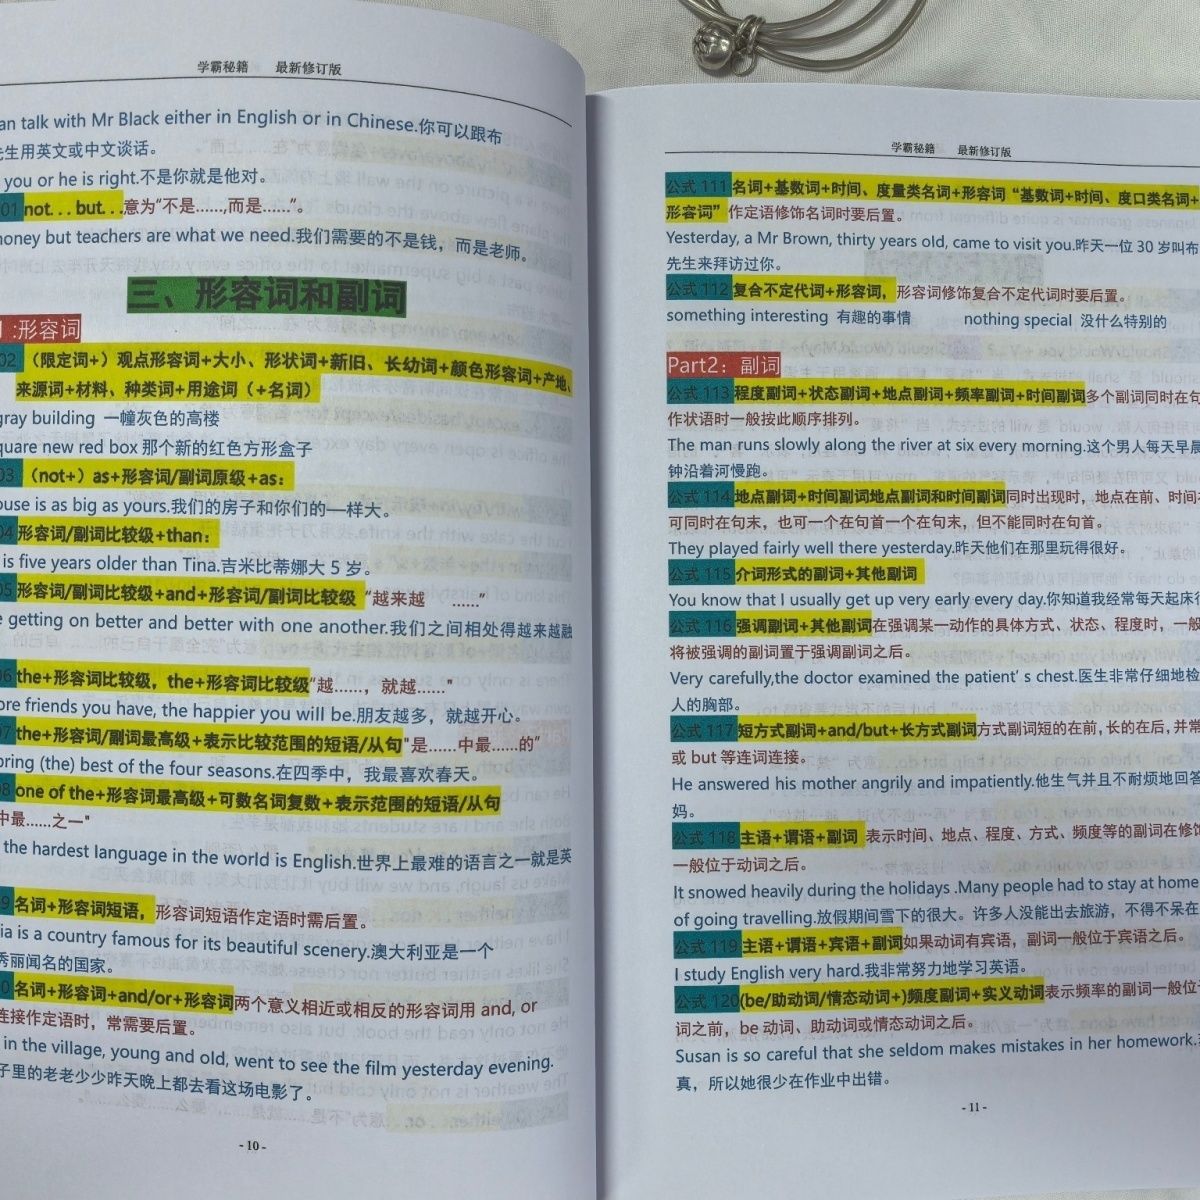 学霸秘籍 最新修订版
an talk with Mr Black either in English or in Chinese.你可以跟布
先生用英文或中文谈话。
you or he is right.不是你就是他对。
01 not...but...意为“不是……,而是……”。
money but teachers are what we need.我们需要的不是钱，而是老师。
三、形容词和副词
:形容词
02 （限定词+）观点形容词+大小、形状词+新旧、长幼词+颜色形容词+产地、
来源词+材料、种类词+用途词（+名词）
gray building 一幢灰色的高楼
quare new red box 那个新的红色方形盒子
03 （not+）as+形容词/副词原级+as：
ouse is as big as yours.我们的房子和你们的一样大。
04 形容词/副词比较级+than：
is five years older than Tina.吉米比蒂娜大 5 岁。
05 形容词/副词比较级+and+形容词/副词比较级 “越来越 ……”
e getting on better and better with one another.我们之间相处得越来越融
06 the+形容词比较级，the+形容词比较级“越……，就越……"
ore friends you have, the happier you will be.朋友越多，就越开心。
07 the+形容词/副词最高级+表示比较范围的短语/从句"是……中最……的"
pring (the) best of the four seasons.在四季中，我最喜欢春天。
08 one of the+形容词最高级+可数名词复数+表示范围的短语/从句
中最……之一"
the hardest language in the world is English.世界上最难的语言之一就是英
9 名词+形容词短语，形容词短语作定语时需后置。
ia is a country famous for its beautiful scenery.澳大利亚是一个
秀丽闻名的国家。
0 名词+形容词+and/or+形容词两个意义相近或相反的形容词用 and, or
连接作定语时，常需要后置。
in the village, young and old, went to see the film yesterday evening.
子里的老老少少昨天晚上都去看这场电影了。
- 10 -
学霸秘籍 最新修订版
公式 111 名词+基数词+时间、度量类名词+形容词 “基数词+时间、度口类名词+
形容词” 作定语修饰名词时要后置。
Yesterday, a Mr Brown, thirty years old, came to visit you.昨天一位 30 岁叫布
先生来拜访过你。
公式 112 复合不定代词+形容词，形容词修饰复合不定代词时要后置。
something interesting 有趣的事情 nothing special 没什么特别的
Part2：副词
公式 113 程度副词+状态副词+地点副词+频率副词+时间副词多个副词同时在句
作状语时一般按此顺序排列。
The man runs slowly along the river at six every morning.这个男人每天早晨
钟沿着河慢跑。
公式 114 地点副词+时间副词地点副词和时间副词同时出现时，地点在前、时间
可同时在句末，也可一个在句首一个在句末，但不能同时在句首。
They played fairly well there yesterday.昨天他们在那里玩得很好。
公式 115 介词形式的副词+其他副词
You know that I usually get up very early every day.你知道我经常每天起床
公式 116 强调副词+其他副词在强调某一动作的具体方式、状态、程度时，一般
将被强调的副词置于强调副词之后。
Very carefully,the doctor examined the patient’s chest.医生非常仔细地检
人的胸部。
公式 117 短方式副词+and/but+长方式副词方式副词短的在前,长的在后，并常
或 but 等连词连接。
He answered his mother angrily and impatiently.他生气并且不耐烦地回答
妈。
公式 118 主语+谓语+副词 表示时间、地点、程度、方式、频度等的副词在修饰
一般位于动词之后。
It snowed heavily during the holidays .Many people had to stay at home
of going travelling.放假期间雪下的很大。许多人没能出去旅游，不得不呆在
公式 119 主语+谓语+宾语+副词如果动词有宾语，副词一般位于宾语之后。
I study English very hard.我非常努力地学习英语。
公式 120 (be/助动词/情态动词+)频度副词+实义动词表示频率的副词一般位
词之前，be 动词、助动词或情态动词之后。
Susan is so careful that she seldom makes mistakes in her homework.
真，所以她很少在作业中出错。
- 11 -